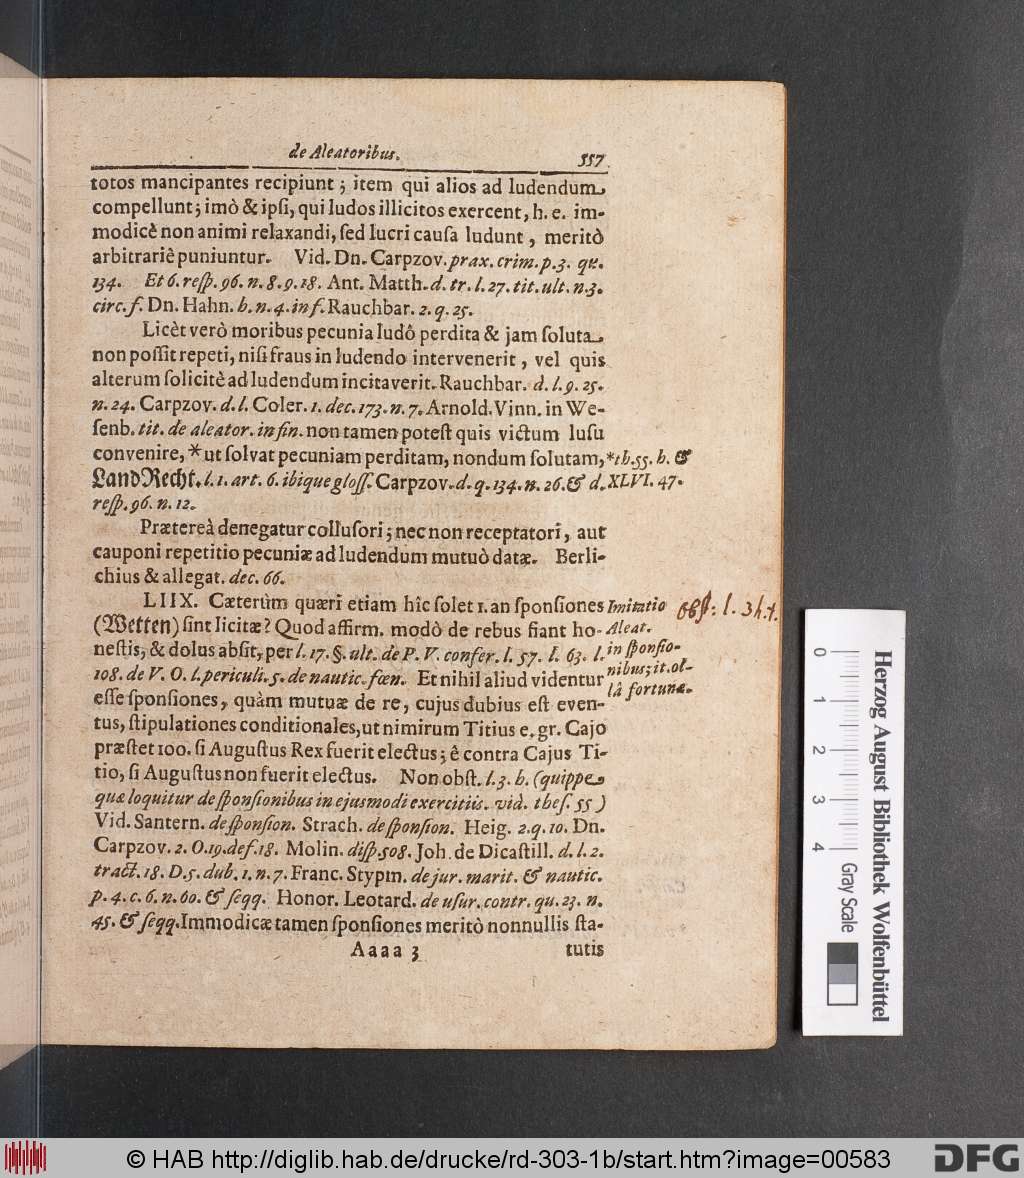 de Aleatoribus. 557
totos mancipantes recipiunt; item qui alios ad ludendum
compellunt; imò & ipſi, qui ludos illicitos exercent, h. e. im-
modicè non animi relaxandi, ſed lucri cauſa ludunt, meritò
arbitrariè puniuntur. Vid. Dn. Carpzov. prax. crim. p. 3. qu.
134. Et 6. reſp. 96. n. 8. 9. 18. Ant. Matth. d. tr. l. 27. tit. ult. n. 3.
circ. f. Dn. Hahn. h. n. 4. in f. Rauchbar. 2. q. 25.
Licèt verò moribus pecunia ludô perdita & jam ſoluta
non poſſit repeti, niſi fraus in ludendo intervenerit, vel quis
alterum ſolicitè ad ludendum incitaverit. Rauchbar. d. l. q. 25.
n. 24. Carpzov. d. l. Coler. 1. dec. 173. n. 7. Arnold. Vinn. in We-
ſenb. tit. de aleator. in fin. non tamen poteſt quis victum luſu
convenire, * ut ſolvat pecuniam perditam, nondum ſolutam,
*th. 55. h. &
LandRecht. l. 1. art. 6. ibique gloſſ. Carpzov. d. q. 134. n. 26. & d.
XLVI. 47.
reſp. 96. n. 12.
Prætereà denegatur colluſori; nec non receptatori, aut
cauponi repetitio pecuniæ ad ludendum mutuò datæ. Berli-
chius & allegat. dec. 66.
LIIX. Cæterùm quæri etiam hîc ſolet 1. an ſponſiones
(Wetten) ſint licitæ? Quod affirm. modò de rebus fiant ho-
neſtis, & dolus abſit, per l. 17. §. ult. de P. V. confer. l. 57. l. 63. l.
108. de V. O. l. periculi. 5. de nautic. fœn. Et nihil aliud videntur
eſſe ſponſiones, quàm mutuæ de re, cujus dubius eſt even-
tus, ſtipulationes conditionales, ut nimirum Titius e. gr. Cajo
præſtet 100. ſi Auguſtus Rex fuerit electus; ê contra Cajus Ti-
tio, ſi Auguſtus non fuerit electus. Non obſt. l. 3. h. (quippe
quæ loquitur de ſponſionibus in ejusmodi exercitiis. vid. theſ. 55)
Vid. Santern. de ſponſion. Strach. de ſponſion. Heig. 2. q. 10. Dn.
Carpzov. 2. O. 19. def. 18. Molin. diſp. 508. Joh. de Dicaſtill. d. l. 2.
tract. 18. D. 5. dub. 1. n. 7. Franc. Stypm. de jur. marit. & nautic.
p. 4. c. 6. n. 60. & ſeqq. Honor. Leotard. de uſur. contr. qu. 23. n.
45. & ſeqq. Immodicæ tamen ſponſiones meritò nonnullis ſta-
Aaaa 3 tutis
Imitatio
Aleat.
in ſponſio-
nibus; it. ol-
lâ fortunæ.
obſt: l. 3 h.t.
0 1 2 3 4
Gray Scale
Herzog August Bibliothek Wolfenbüttel
© HAB http://diglib.hab.de/drucke/rd-303-1b/start.htm?image=00583
DFG